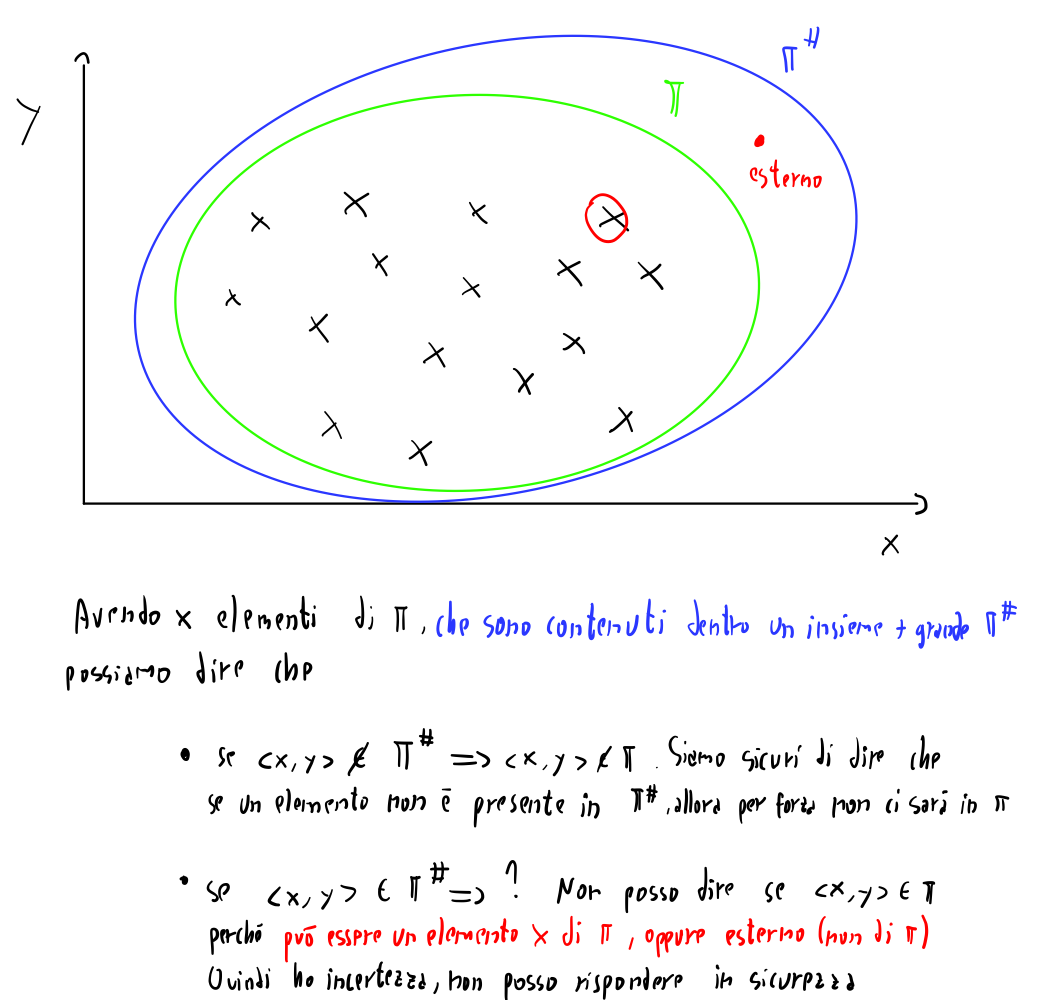 π#
y
π
esterno
x
Avendo x elementi di π, che sono contenuti dentro un insieme + grande π#
possiamo dire che
• se <x,y> ∉ π# => <x,y> ∉ π. Siamo sicuri di dire che
se un elemento non è presente in π#, allora per forza non ci sarà in π
• se <x,y> ∈ π# => ? Non posso dire se <x,y> ∈ π
perché può essere un elemento x di π, oppure esterno (non di π)
Quindi ho incertezza, non posso rispondere in sicurezza